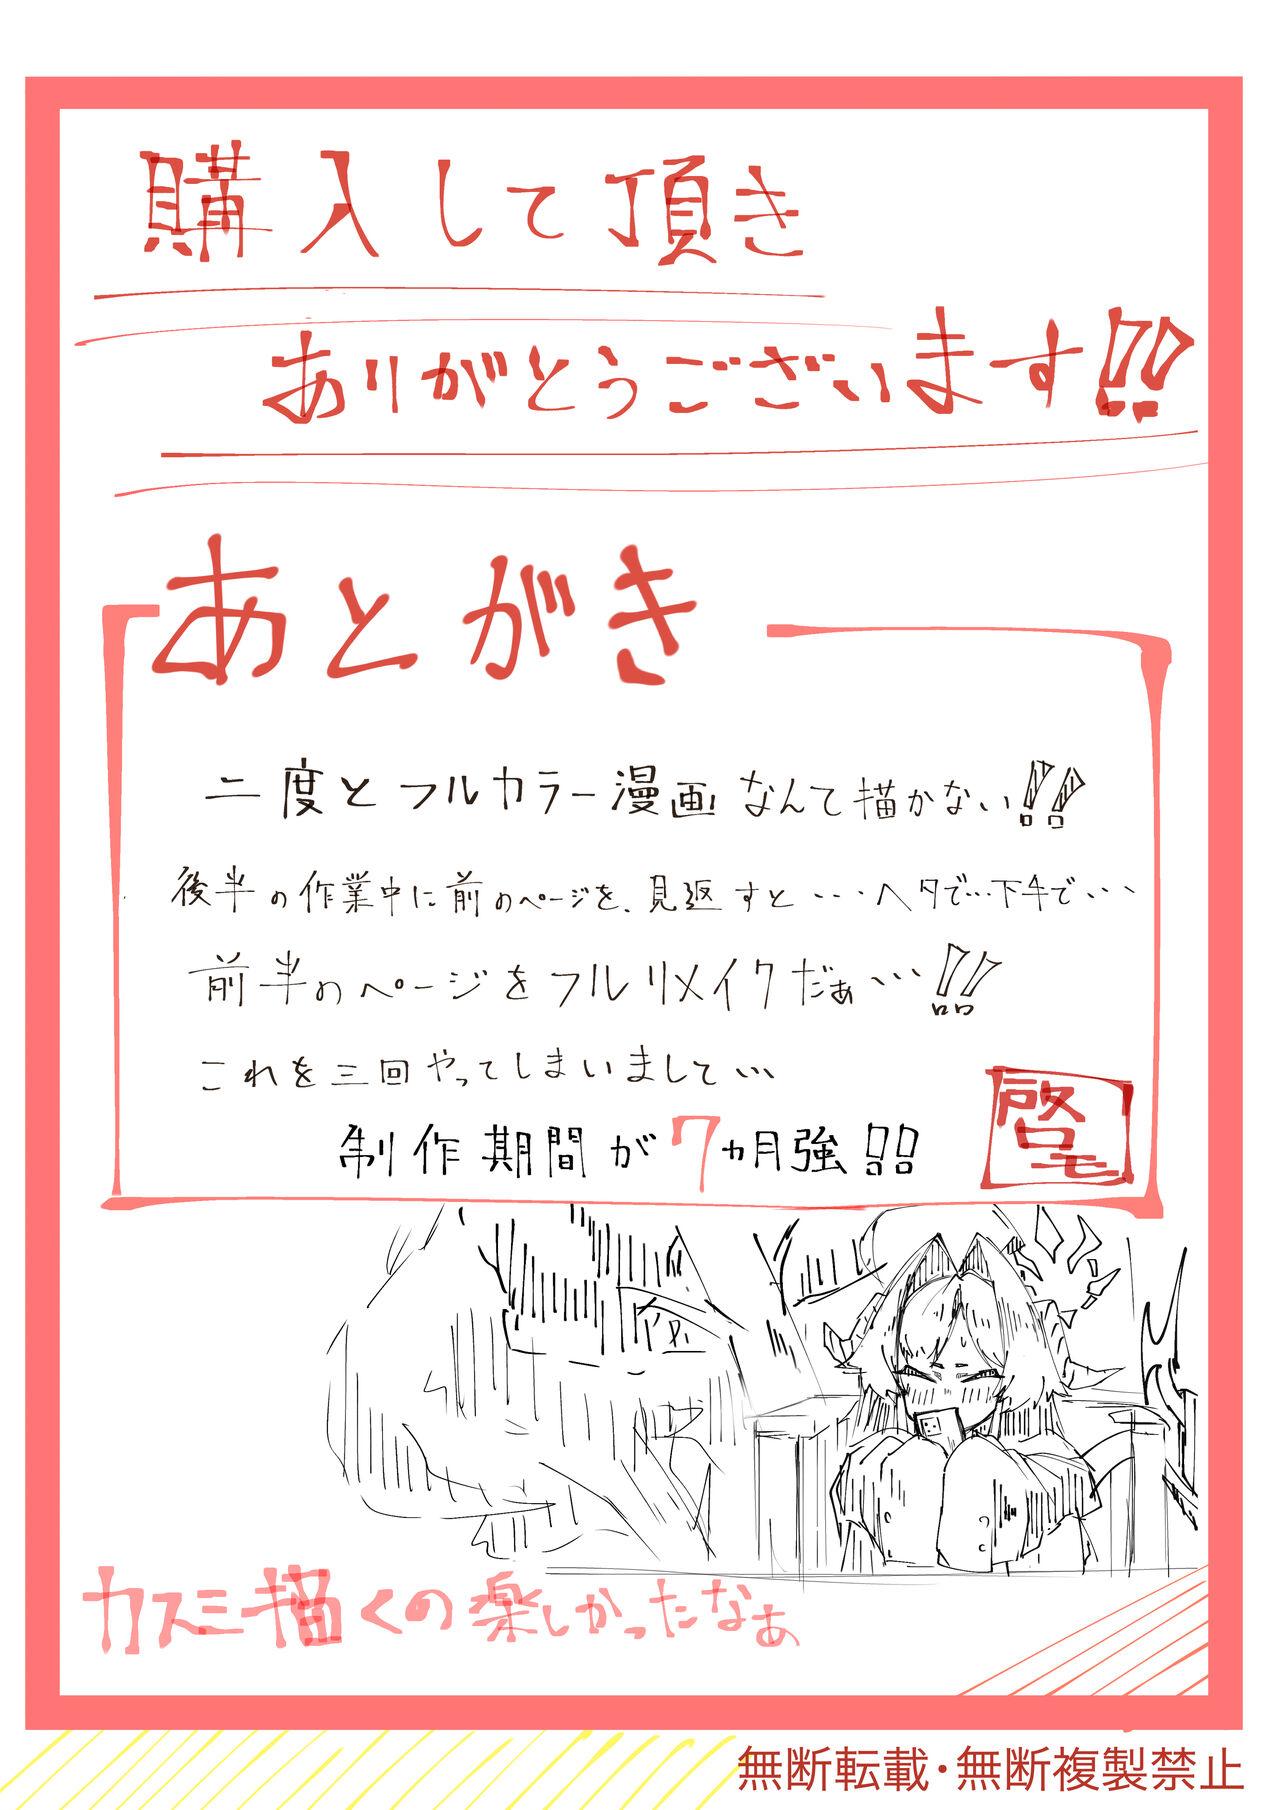 購入して頂き
ありがとうございます!!
あとがき
二度とフルカラー漫画なんて描かない!!
後半の作業中に前のページを、見返すと・・・ヘタで…下手で・・・
前半のページをフルリメイクだぁ・・・!!
これを三回やってしまいまして・・・
制作期間が7ヵ月強!!
カスミ描くの楽しかったなぁ
無断転載・無断複製禁止